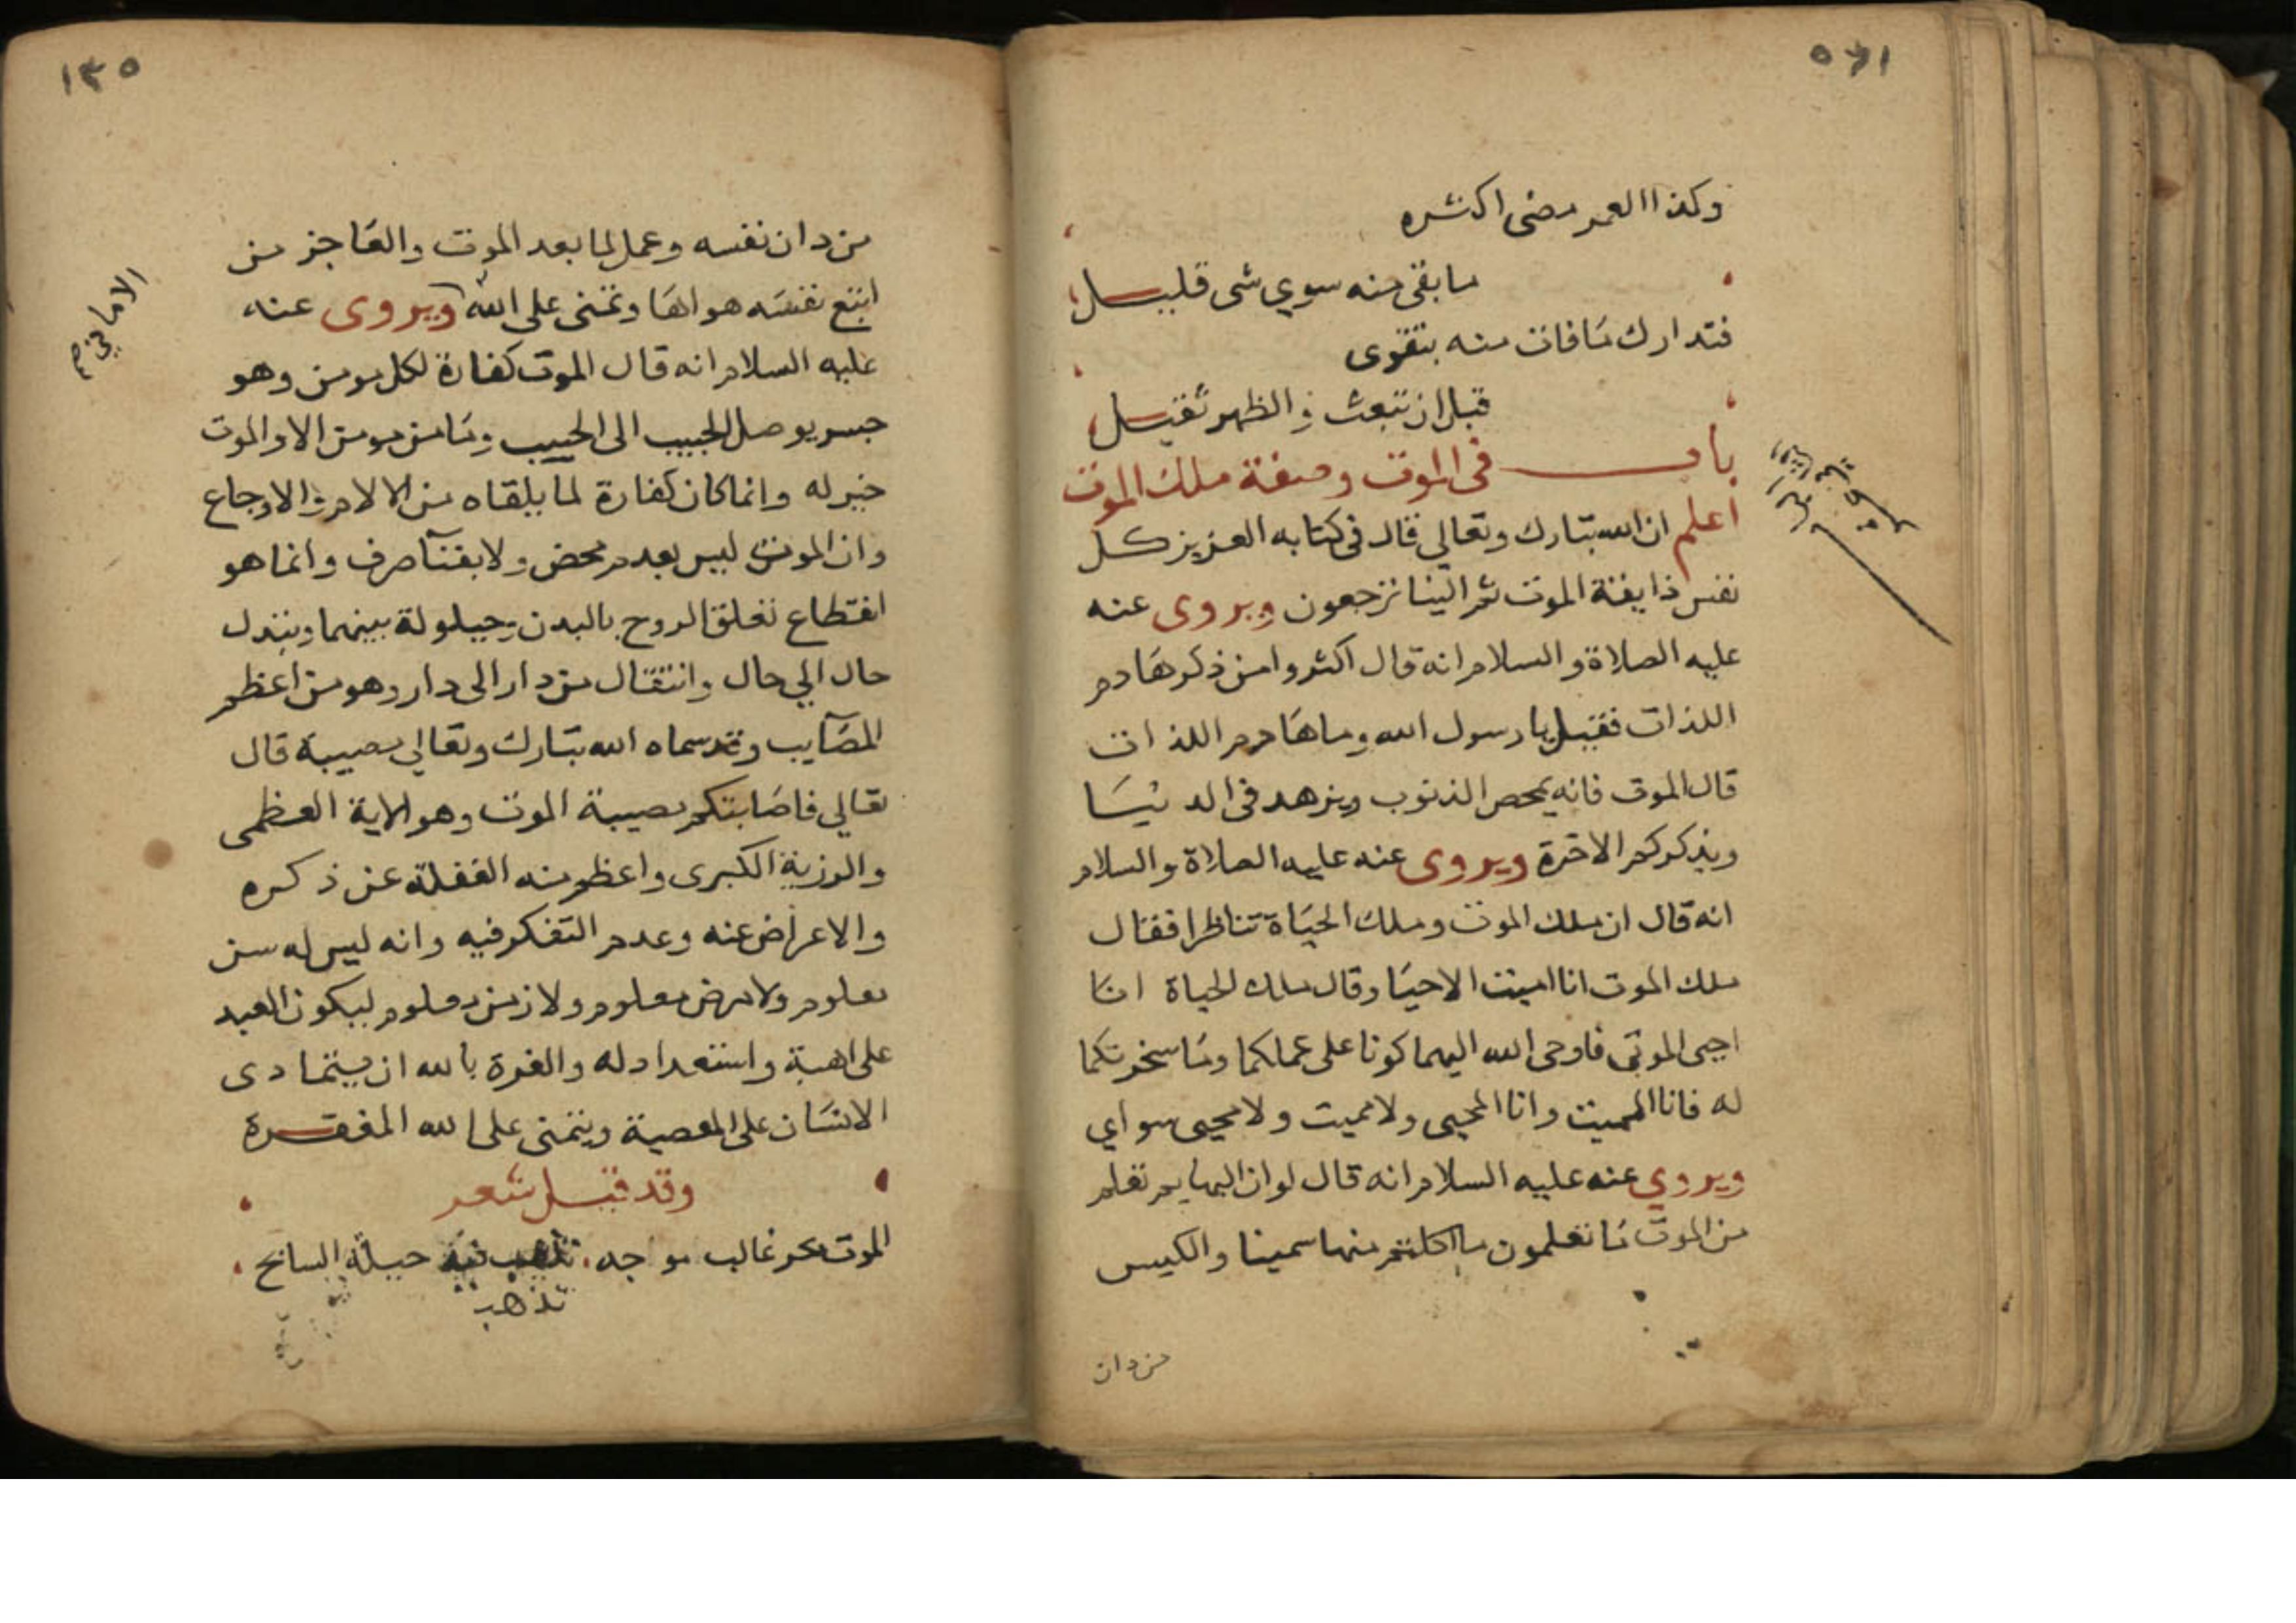 وكذا العمر مضى اكثره
ما بقى منه سوي شى قليل
فتدارك ما فات منه بتقوى
قبل ان تبعث والظهر ثقيل
باب فى الموت وصفة ملك الموت
اعلم ان الله تبارك وتعالي قال فى كتابه العزيز كل
نفس ذايقة الموت ثم الينا ترجعون ويروى عنه
عليه الصلاة والسلام انه قال اكثروا من ذكر هادم
اللذات فقيل يا رسول الله وما هادم اللذات
قال الموت فانه يمحص الذنوب ويزهد فى الدنيا
ويذكركم الاخرة ويروى عنه عليه الصلاة والسلام
انه قال ان ملك الموت وملك الحياة تناظرا فقال
ملك الموت انا اميت الاحيا وقال ملك الحياة انا
احيى الموتى فاوحى الله اليهما كونا على عملكما وما سخرتكما
له فانا المميت وانا المحيى ولا مميت ولا محيى سواي
ويروي عنه عليه السلام انه قال لو ان البهايم تعلم
من الموت ما تعلمون ما اكلتم منها سمينا والكيس
من دان
١٣٥
من دان نفسه وعمل لما بعد الموت والعاجز من
اتبع نفسه هواها وتمنى على الله ويروى عنه
الاماني صح
عليه السلام انه قال الموت كفارة لكل مومن وهو
جسر يوصل الحبيب الى الحبيب وما من مومن الا والموت
خير له وانما كان كفارة لما يلقاه من الالام والاوجاع
وان الموت ليس بعدم محض ولا بفنآ صرف وانما هو
انقطاع تعلق الروح بالبدن وحيلولة بينهما وتبدل
حال الي حال وانتقال من دار الى دار وهو من اعظم
المصآيب وقد سماه الله تبارك وتعالي مصيبة قال
تعالي فاصابتكم مصيبة الموت وهو الاية العظمى
والرزية الكبرى واعظم منه الغفلة عن ذكره
والاعراض عنه وعدم التفكر فيه وانه ليس له سن
معلوم ولا مرض معلوم ولا زمن معلوم ليكون العبد
على اهبة واستعداد له والغرة بالله ان يتمادى
الانسان على المعصية ويتمنى على الله المغفرة
وقد قيل شعر
الموت بحر غالب موجه تذهب فيه حيلة السابح
تذهب